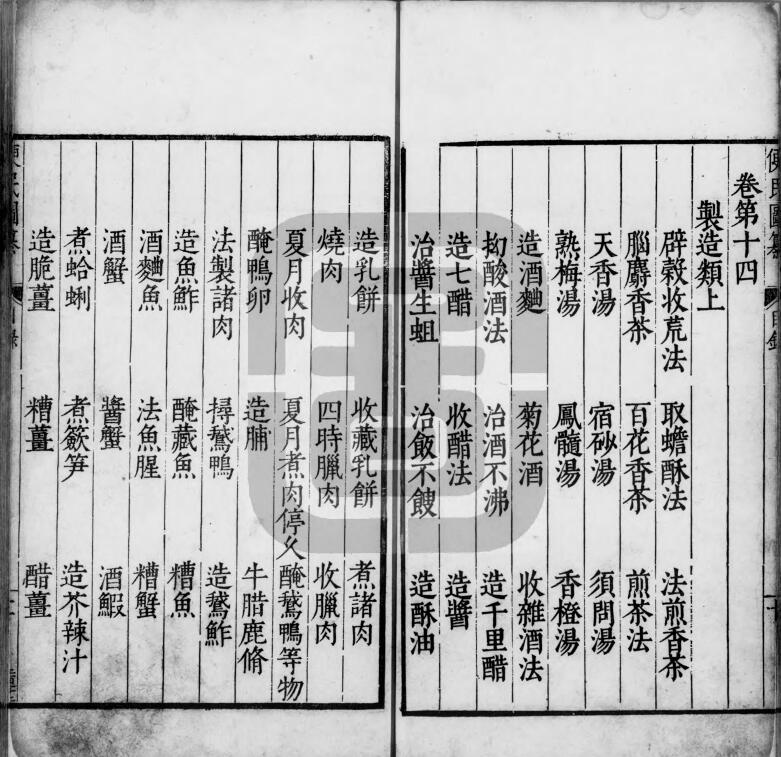 卷第十四
製造類上
辟穀收荒法 取蟾酥法 法煎香茶
腦麝香茶 百花香茶 煎茶法
天香湯 宿砂湯 須問湯
熟梅湯 鳳髓湯 香橙湯
造酒麯 菊花酒 收雜酒法
抝酸酒法 治酒不沸 造千里醋
造七醋 收醋法 造醬
治醬生蛆 治飯不餿 造酥油
造乳餅 收藏乳餅 煮諸肉
燒肉 四時臘肉 收臘肉
夏月收肉 夏月煮肉停久 醃鵞鴨等物
醃鴨卵 造脯 牛腊鹿脩
法製諸肉 撏鵞鴨 造鵞鮓
造魚鮓 醃藏魚 糟魚
酒麯魚 法魚腥 糟蟹
酒蟹 醬蟹 酒鰕
煮蛤蜊 煮簌笋 造芥辣汁
造脆薑 糟薑 醋薑